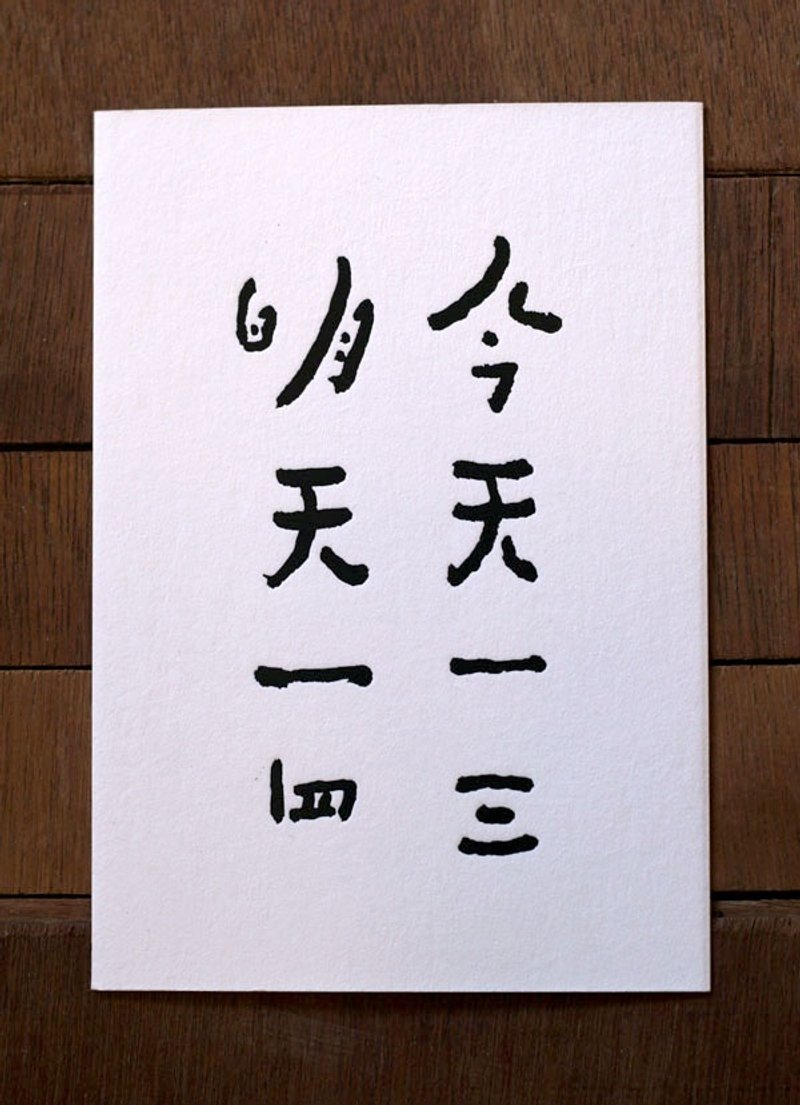 今天一三
明天一四